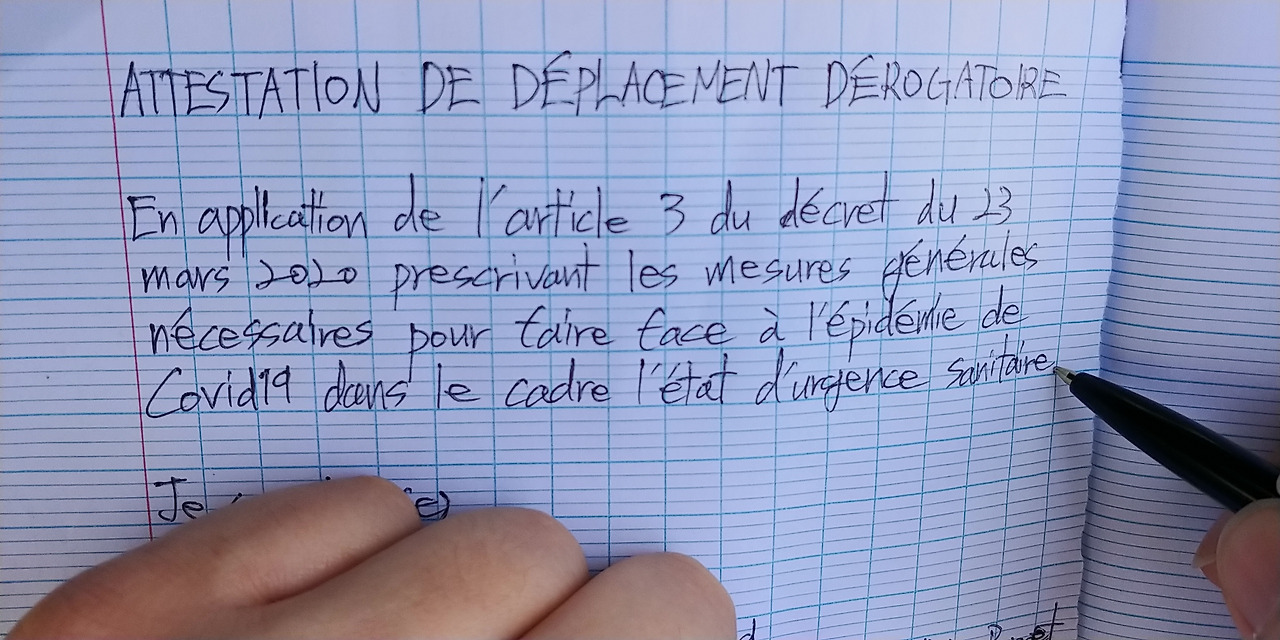 ATTESTATION DE DÉPLACEMENT DÉROGATOIRE
En application de l'article 3 du décret du 23
mars 2020 prescrivant les mesures générales
nécessaires pour faire face à l'épidémie de
Covid19 dans le cadre l'état d'urgence sanitaire
Je